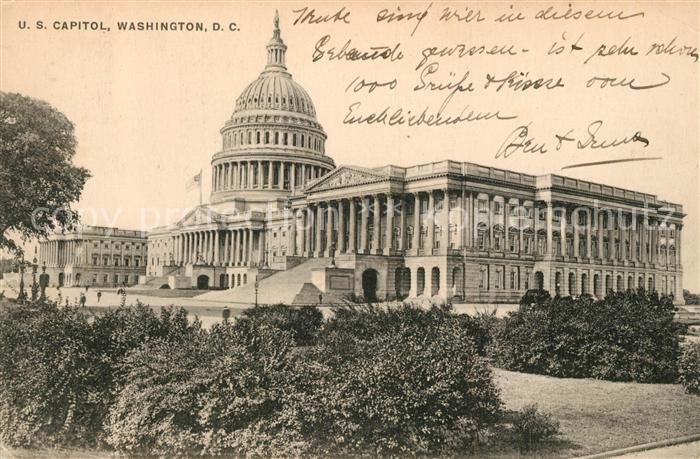 U. S. CAPITOL, WASHINGTON, D. C.
Heute sind wir in diesem
Gebaude gewesen - ist sehr schön
1000 Grüße & Küsse von
Euch liebenden
Ben & Irma
copyright picture